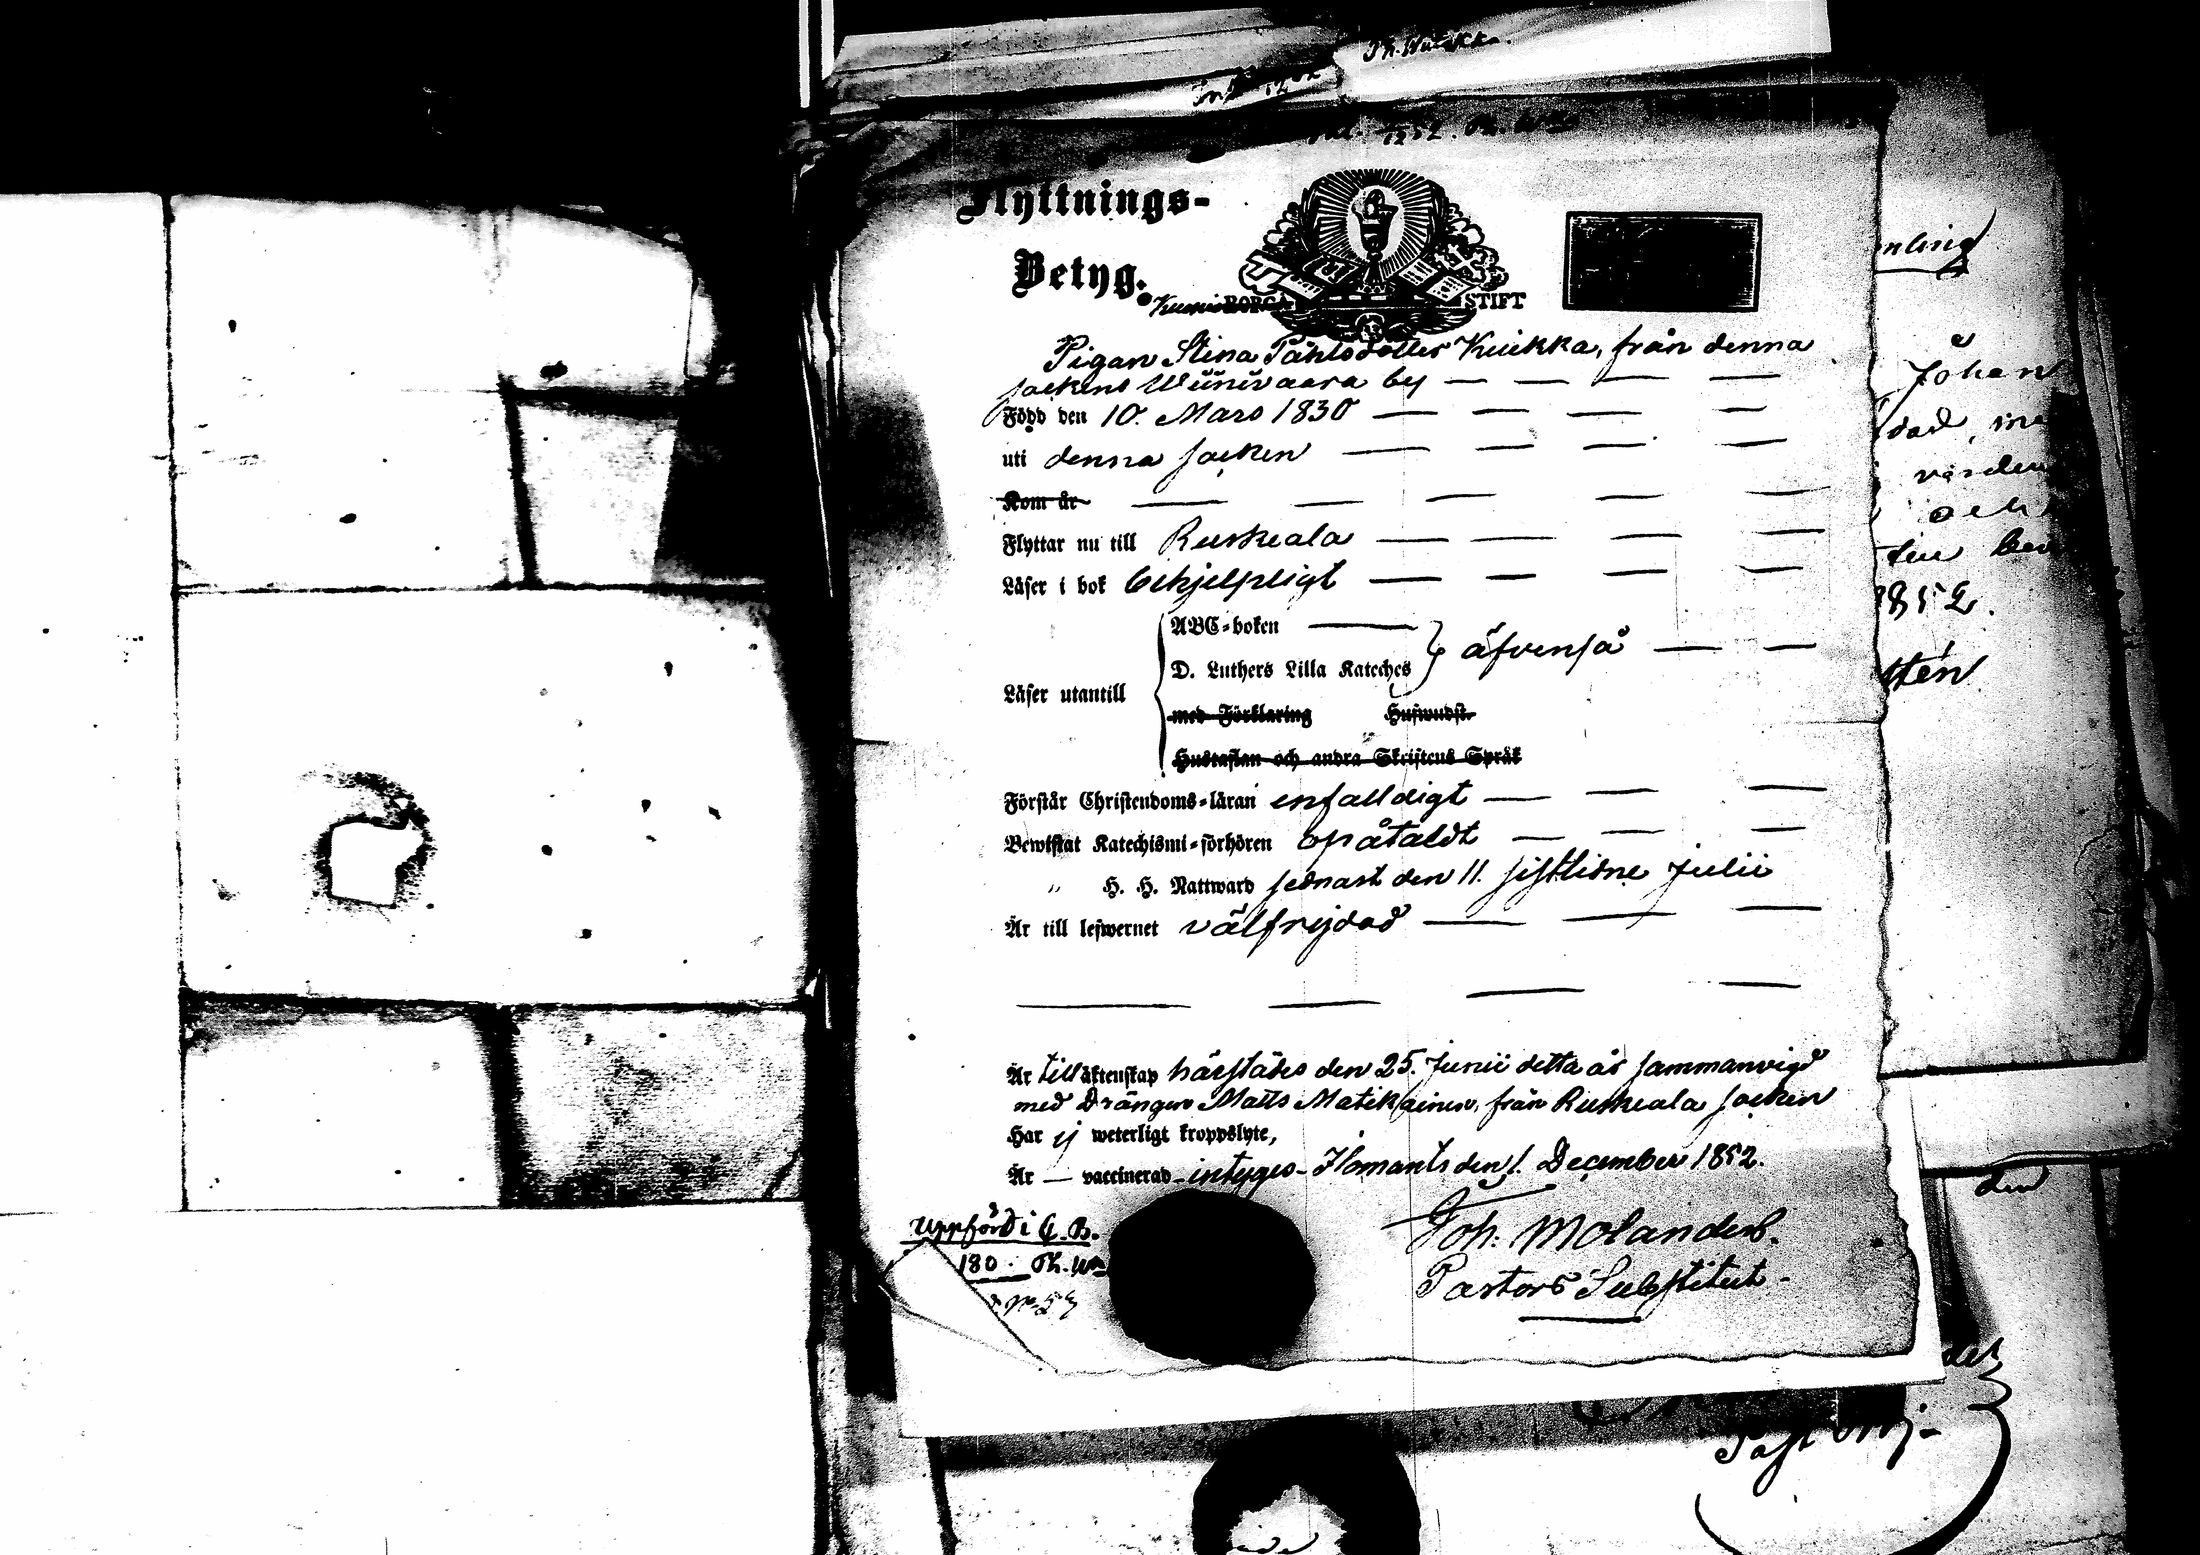 Th. Wäkkä.
1852. Th. Wm
Flyttnings-
Betyg.
Kuopio BORGÅ STIFT
Pigan Stina Påhlsdotter Kuikka, från denna
socken Wiinivaara by — — — —
Född den 10. Mars 1830 — — — —
uti denna socken — — — —
Kom år — — — — —
Flyttar nu till Ruskeala — — — —
Läser i bok behjelpligt — — — —
ABC-boken —
D. Luthers Lilla Kateches } äfvenså — —
Läser utantill
med Förklaring Hufwudst.
Hustaflan och andra Skriftens Språk
Förstår Christendoms-läran enfalldigt — — —
Bewistat Katechismi-förhören opåtaldt — — —
" H. H. Nattward sednast den 11. sistlidne Julii
Är till lefwernet välfrejdad — — —
— — — —
Är till äktenskap härstädes den 25. Junii detta år sammanvigd
med Drängen Matts Matikainen, från Ruskeala socken
Har ej weterligt kroppslyte,
Är — vaccinerad - intygas - Ilomants den 1. December 1852.
Joh. Molander.
Pastors Substitut -
Uppförd i C. B.
180. Th. Wm
No 57
Johan
och
1852.
den